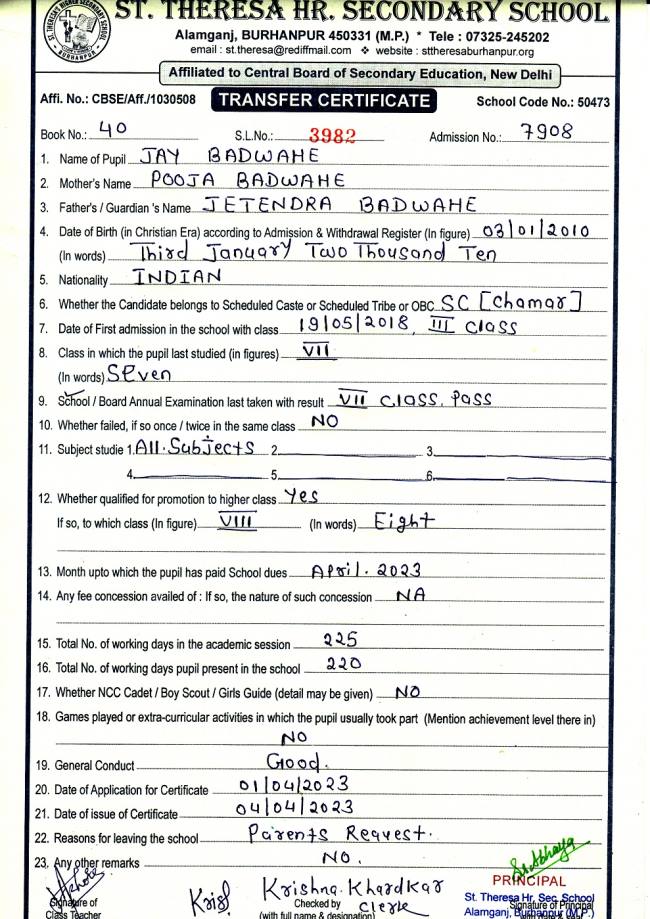 ST. THERESA HR. SECONDARY SCHOOL
Alamganj, BURHANPUR 450331 (M.P.) * Tele : 07325-245202
email : st.theresa@rediffmail.com ❖ website : sttheresaburhanpur.org
Affiliated to Central Board of Secondary Education, New Delhi
Affi. No.: CBSE/Aff./1030508 TRANSFER CERTIFICATE School Code No.: 50473
Book No.: 40 S.L.No.: 3982 Admission No.: 7908
1. Name of Pupil JAY BADWAHE
2. Mother's Name POOJA BADWAHE
3. Father's / Guardian 's Name JETENDRA BADWAHE
4. Date of Birth (in Christian Era) according to Admission & Withdrawal Register (In figure) 03/01/2010
(In words) Third January Two Thousand Ten
5. Nationality INDIAN
6. Whether the Candidate belongs to Scheduled Caste or Scheduled Tribe or OBC SC [Chamar]
7. Date of First admission in the school with class 19/05/2018, III Class
8. Class in which the pupil last studied (in figures) VII
(In words) Seven
9. School / Board Annual Examination last taken with result VII Class. Pass
10. Whether failed, if so once / twice in the same class NO
11. Subject studie 1. All. Subjects 2. 3.
4. 5. 6.
12. Whether qualified for promotion to higher class Yes
If so, to which class (In figure) VIII (In words) Eight
13. Month upto which the pupil has paid School dues April. 2023
14. Any fee concession availed of : If so, the nature of such concession NA
15. Total No. of working days in the academic session 225
16. Total No. of working days pupil present in the school 220
17. Whether NCC Cadet / Boy Scout / Girls Guide (detail may be given) NO
18. Games played or extra-curricular activities in which the pupil usually took part (Mention achievement level there in)
NO
19. General Conduct Good.
20. Date of Application for Certificate 01/04/2023
21. Date of issue of Certificate 04/04/2023
22. Reasons for leaving the school Parents Request.
23. Any other remarks NO.
Krishna. Khardkar
PRINCIPAL
Signature of Checked by Clerk St. Theresa Hr. Sec. School
Signature of Principal
Class Teacher (with full name & designation) Alamganj, Burhanpur (M.P.)